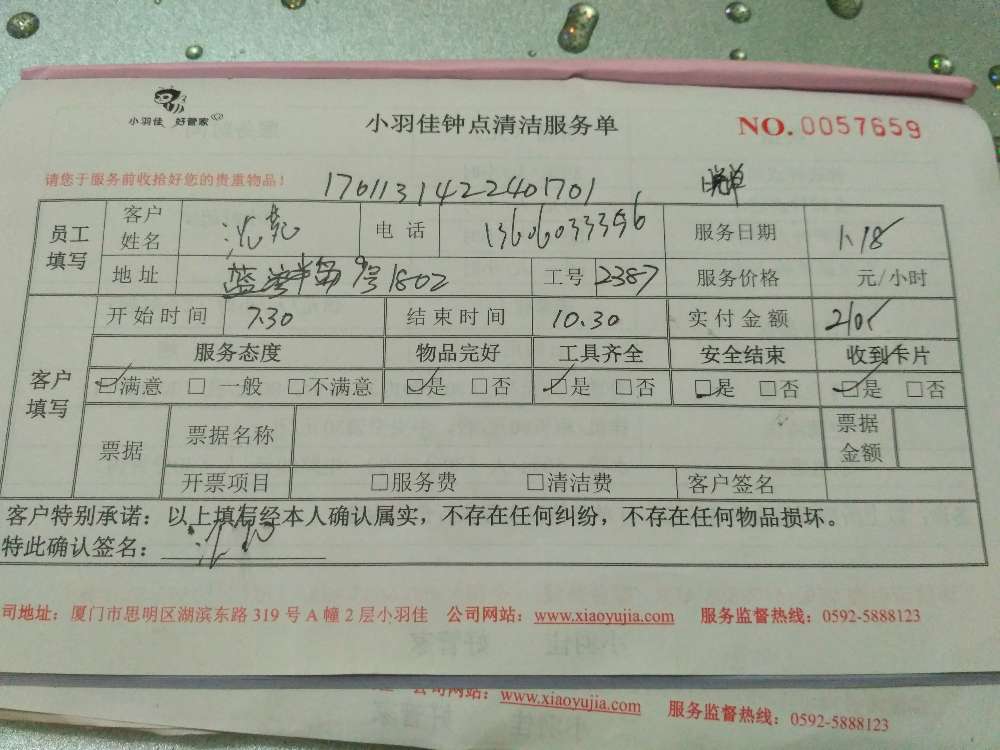 小羽佳 好管家
小羽佳钟点清洁服务单
NO. 0057659
请您于服务前收拾好您的贵重物品！
1701131422401701
员工填写
客户姓名
电话 13606033396
服务日期 1.18
地址 蓝湾半岛9号1802
工号 2387
服务价格 元/小时
客户填写
开始时间 7.30
结束时间 10.30
实付金额
服务态度 物品完好 工具齐全 安全结束 收到卡片
☑满意 □ 一般 □不满意 ☑是 □否 ☑是 □否 ☑是 □否 ☑是 □否
票据
票据名称
票据金额
开票项目 □服务费 □清洁费 客户签名
客户特别承诺：以上填写经本人确认属实，不存在任何纠纷，不存在任何物品损坏。
特此确认签名：
司地址：厦门市思明区湖滨东路 319 号 A 幢 2 层小羽佳 公司网站：www.xiaoyujia.com 服务监督热线：0592-5888123
公司网站：www.xiaoyujia.com 服务监督热线：0592-5888123